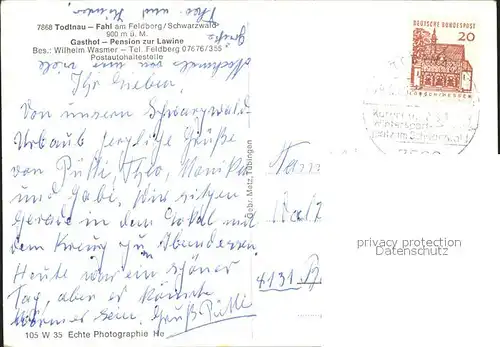 7868 Todtnau – Fahl am Feldberg/Schwarzwald
900 m ü. M.
Gasthof – Pension zur Lawine
Bes.: Wilhelm Wasmer – Tel. Feldberg 07676/355
Postautohaltestelle
Ihr Lieben,
Von unsern Schwarzwald
Urlaub herzliche Grüße
von Putti, Theo, Monika
und Gabi. Wir sitzen
gerade in dem Lokal mit
dem Kreuz zu Abendessen.
Heute war ein schöner
Tag, aber es könnte
wärmer sein. Gruß Putti
Nochmals von uns viele
Grüße
Theo und Kinder
105 W 35 Echte Photographie
Gebr. Metz, Tübingen
DEUTSCHE BUNDESPOST
20
LORSCH/HESSEN
4131
privacy protection
Datenschutz